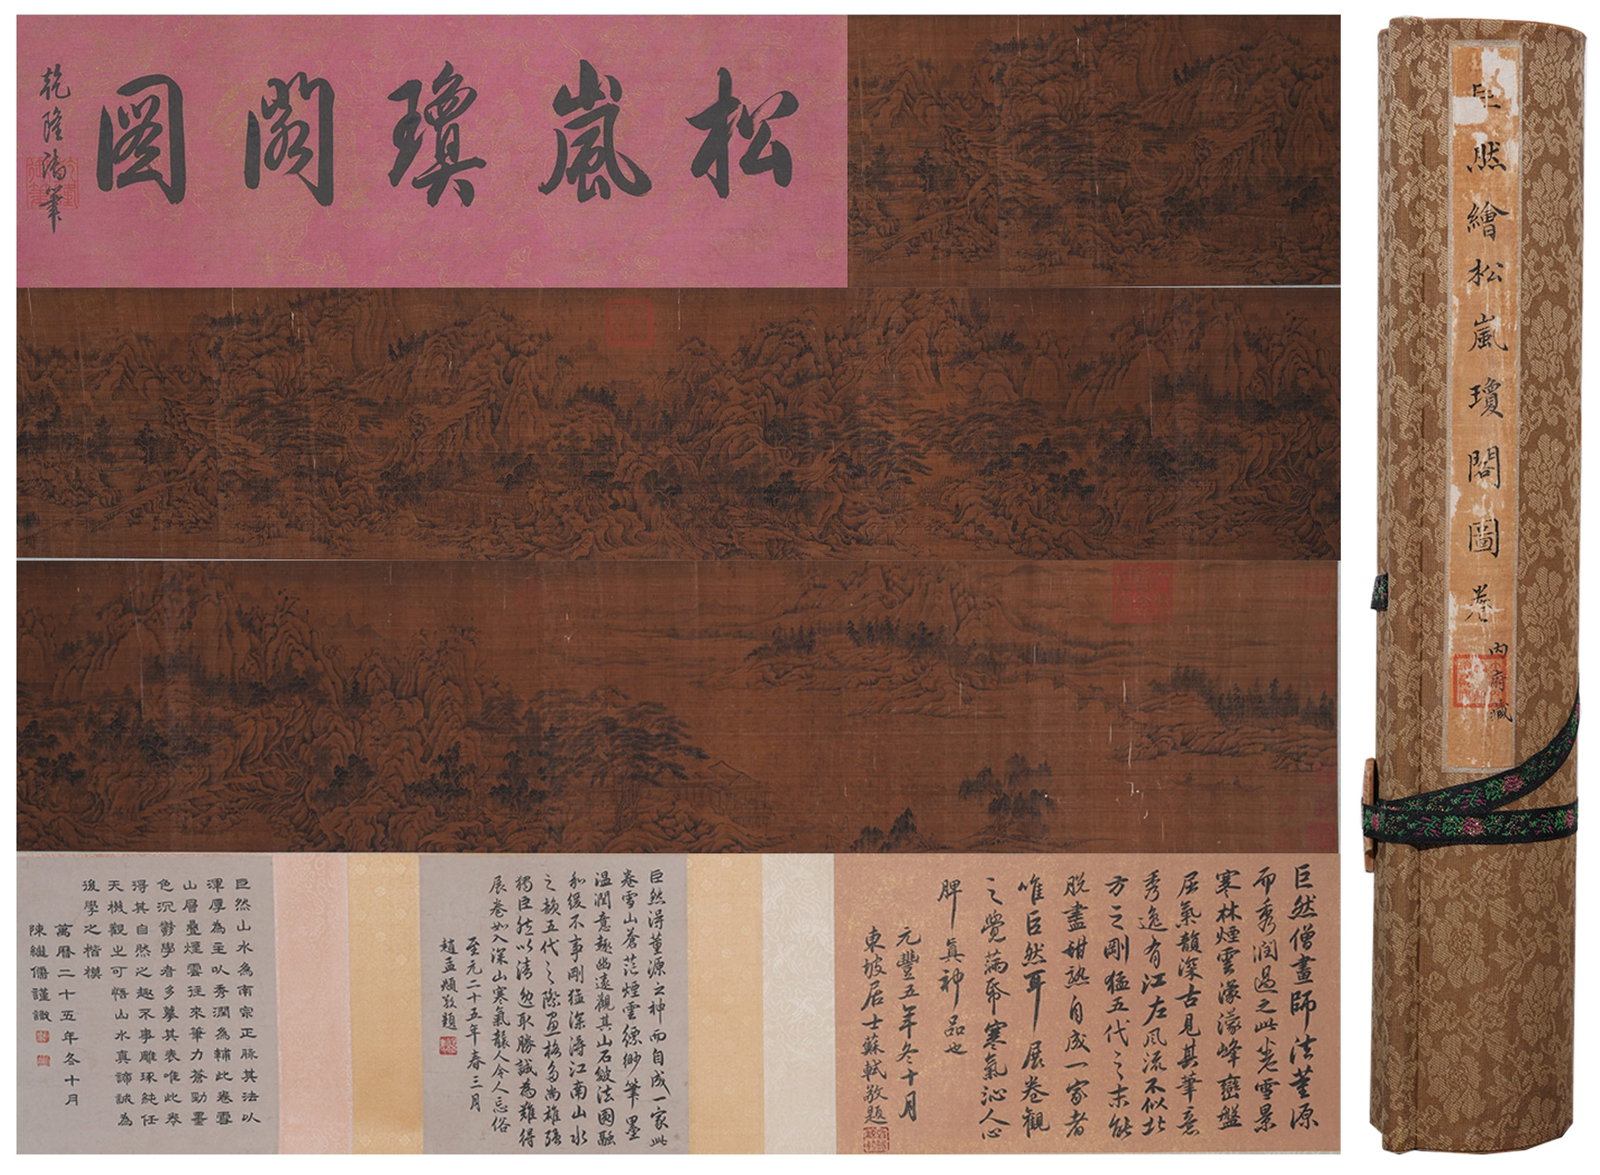 松嵐瓊閣圖
乾隆御筆
巨然繪松嵐瓊閣圖卷
內府藏
巨然僧畫師法董源
而秀潤過之此卷雪景
寒林煙雲濛濛峰巒盤
屈氣韻深古見其筆意
秀逸有江左風流不似北
方之剛猛五代之末能
脫盡甜熟自成一家者
唯巨然耳展卷觀
之覺滿紙寒氣沁人心
脾真神品也
元豐五年冬十月
東坡居士蘇軾敬題
巨然得董源之神而自成一家此
卷雪山蒼茫煙雲縹緲筆墨
溫潤意趣幽遠觀其山石皴法圓融
和緩不事剛猛深得江南山水
之韻五代之際畫格多尚雄強
獨巨然以清勉取勝誠為難得
展卷如入深山寒氣襲人令人忘俗
至元二十五年春三月
趙孟頫敬題
巨然山水為南宗正脉其法以
渾厚為主以秀潤為輔此卷雪
山層疊煙雲往來筆力蒼勁墨
色沉鬱學者多摹其表唯此卷
得其自然之趣不事雕琢純任
天機觀之可悟山水真諦誠為
後學之楷模
萬曆二十五年冬十月
陳繼儒謹識